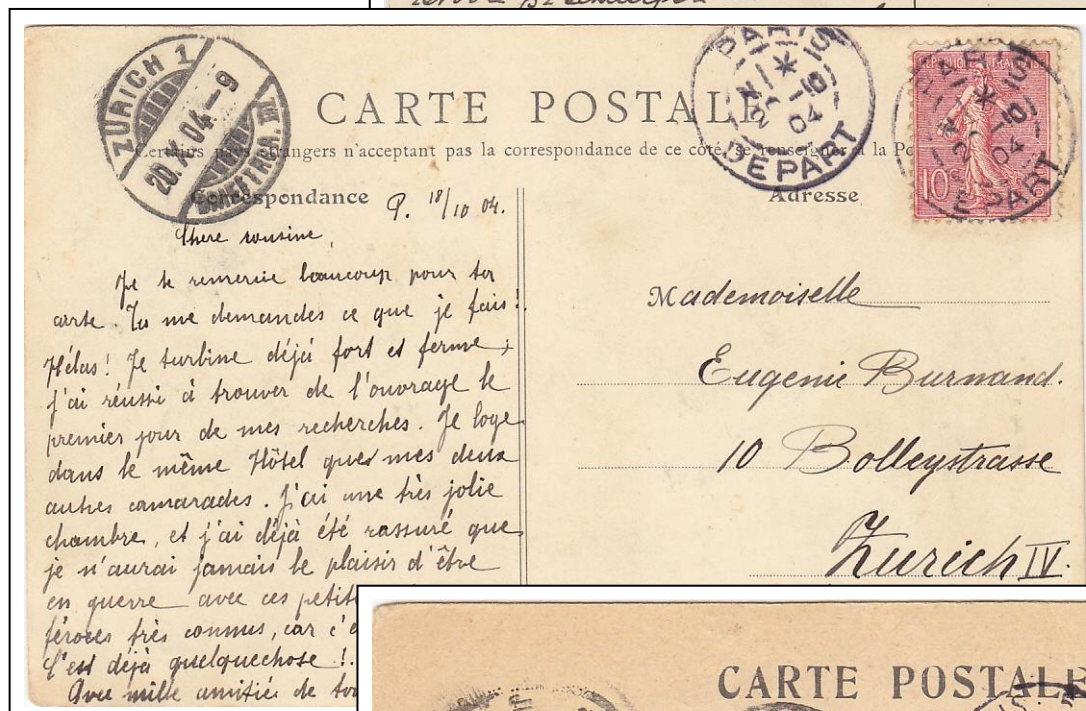 CARTE POSTALE
Certains pays étrangers n'acceptant pas la correspondance de ce côté, se renseigner à la
ZÜRICH 1
20.X.04.-9
BRIEFTRÄG. III
PARIS
DEPART
PARIS
DEPART
REPUBLIQUE FRANÇAISE
10
Correspondance
P. 18/10 04.
Chere cousine,
Je te remercie beaucoup pour ta
carte. Tu me demandes ce que je fais!
Hélas! Je turbine déjà fort et ferme;
j'ai réussi à trouver de l'ouvrage le
premier jour de mes recherches. Je loge
dans le même Hôtel que mes deux
autres camarades. J'ai une très jolie
chambre, et j'ai déjà été rassuré que
je n'aurai jamais le plaisir d'être
en guerre avec ces petits
féroces très connus, car c'e
C'est déjà quelquechose!
Avec mille amitiés de
Adresse
Mademoiselle
Eugenie Burnand.
10 Bolleystrasse
Zurich IV.
CARTE POSTALE